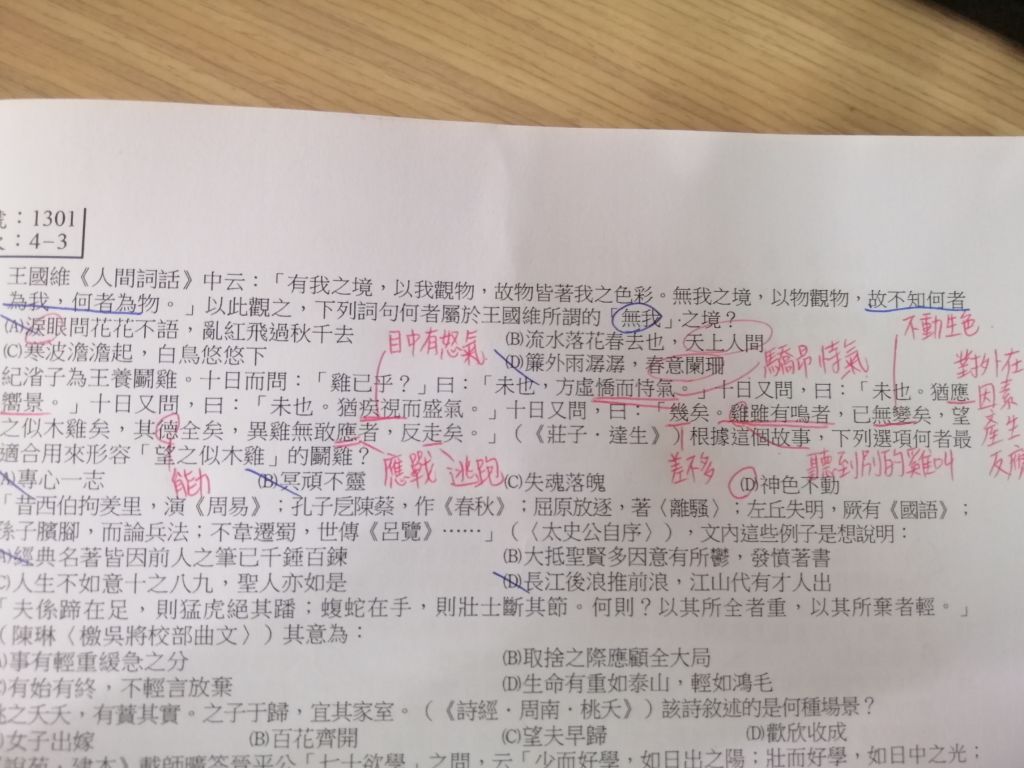 ：1301
：4-3
王國維《人間詞話》中云：「有我之境，以我觀物，故物皆著我之色彩。無我之境，以物觀物，故不知何者
為我，何者為物。」以此觀之，下列詞句何者屬於王國維所謂的「無我」之境？
(A)淚眼問花花不語，亂紅飛過秋千去
(B)流水落花春去也，天上人間
不動生色
(C)寒波澹澹起，白鳥悠悠下
目中有怒氣
(D)簾外雨潺潺，春意闌珊
驕昂恃氣
對外在
因素
產生
反應
紀渻子為王養鬭雞。十日而問：「雞已乎？」曰：「未也，方虛憍而恃氣。」十日又問，曰：「未也。猶應
嚮景。」十日又問，曰：「未也。猶疾視而盛氣。」十日又問，曰：「幾矣。雞雖有鳴者，已無變矣，望
之似木雞矣，其德全矣，異雞無敢應者，反走矣。」（《莊子．達生》）根據這個故事，下列選項何者最
適合用來形容「望之似木雞」的鬭雞？
能力
應戰
逃跑
差不多
聽到別的雞叫
(A)專心一志
(B)冥頑不靈
(C)失魂落魄
(D)神色不動
「昔西伯拘羑里，演《周易》；孔子戹陳蔡，作《春秋》；屈原放逐，著〈離騷〉；左丘失明，厥有《國語》；
孫子臏腳，而論兵法；不韋遷蜀，世傳《呂覽》……」（〈太史公自序〉），文內這些例子是想說明：
(A)經典名著皆因前人之筆已千錘百鍊
(B)大抵聖賢多因意有所鬱，發憤著書
(C)人生不如意十之八九，聖人亦如是
(D)長江後浪推前浪，江山代有才人出
「夫係蹄在足，則猛虎絕其蹯；蝮蛇在手，則壯士斷其節。何則？以其所全者重，以其所棄者輕。」
（陳琳〈檄吳將校部曲文〉）其意為：
(A)事有輕重緩急之分
(B)取捨之際應顧全大局
(C)有始有終，不輕言放棄
(D)生命有重如泰山，輕如鴻毛
桃之夭夭，有蕡其實。之子于歸，宜其家室。（《詩經．周南．桃夭》）該詩敘述的是何種場景？
(A)女子出嫁
(B)百花齊開
(C)望夫早歸
(D)歡欣收成
《說苑．建本》載師曠答晉平公「七十欲學」之問，云「少而好學，如日出之陽；壯而好學，如日中之光；